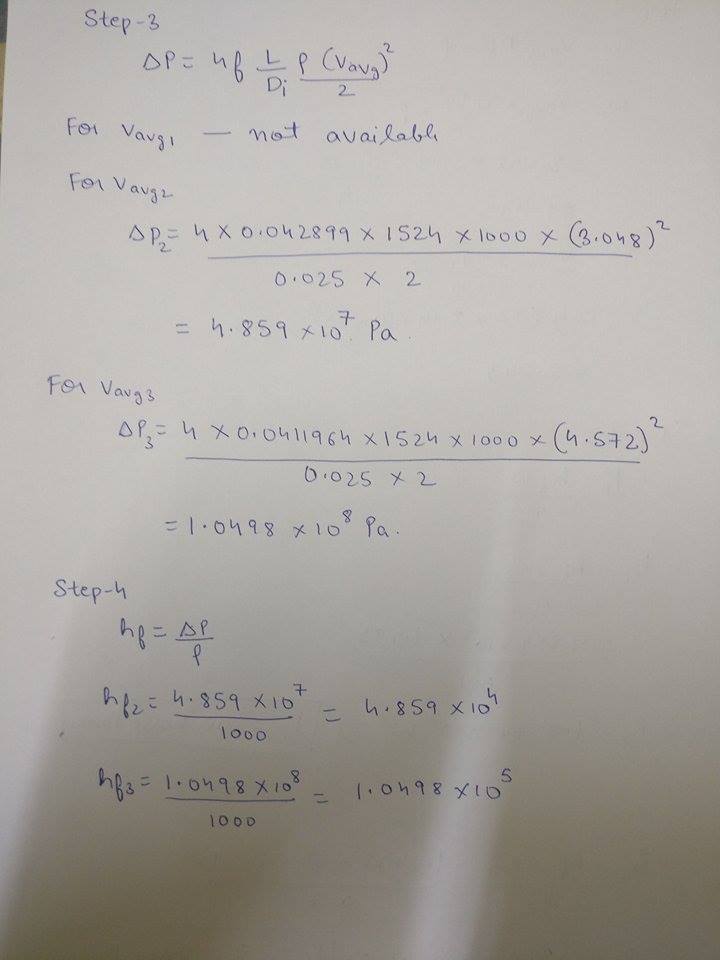 Step-3
ΔP = 4f L/Di ρ (Vavg)²/2
For Vavg1 — not available
For Vavg2
ΔP2 = 4 × 0.042899 × 1524 × 1000 × (3.048)²
0.025 × 2
= 4.859 × 10⁷ Pa.
For Vavg3
ΔP3 = 4 × 0.0411964 × 1524 × 1000 × (4.572)²
0.025 × 2
= 1.0498 × 10⁸ Pa.
Step-4
hf = ΔP/ρ
hf2 = 4.859 × 10⁷/1000 = 4.859 × 10⁴
hf3 = 1.0498 × 10⁸/1000 = 1.0498 × 10⁵